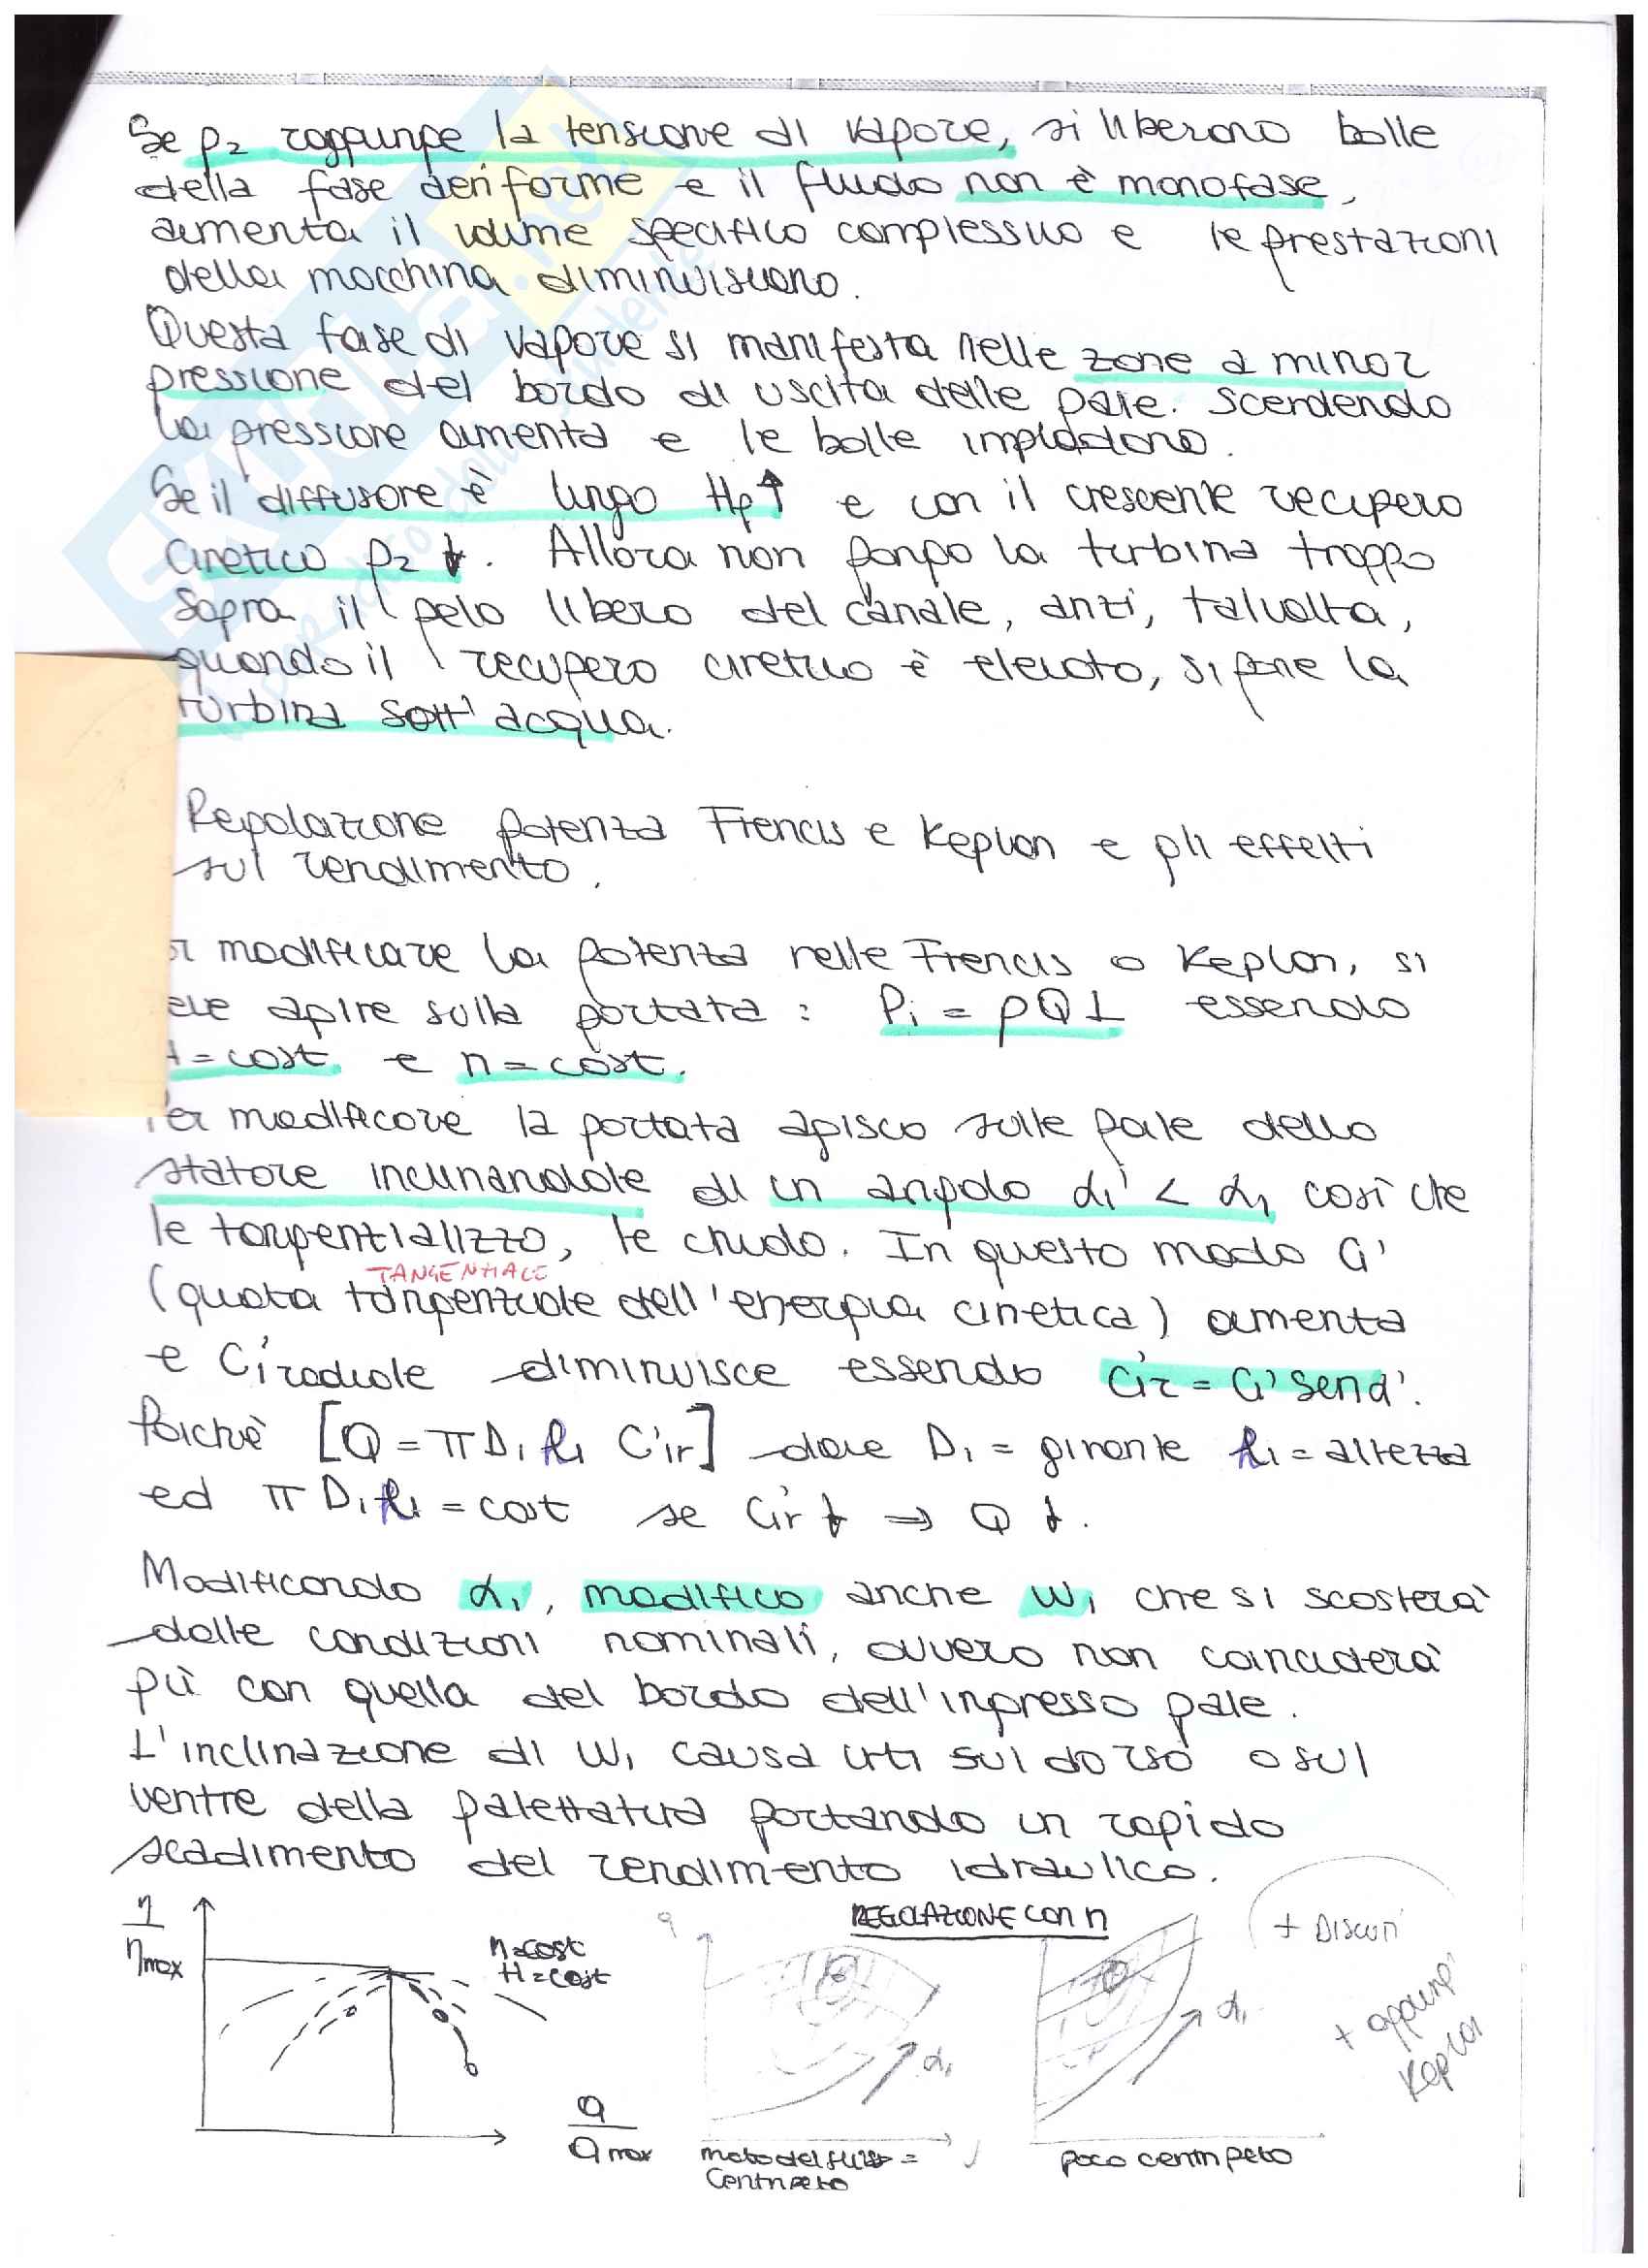 Se p₂ raggiunge la tensione di vapore, si liberano bolle
della fase aeriforme e il fluido non è monofase,
aumenta il volume specifico complessivo e le prestazioni
della macchina diminuiscono.
Questa fase di vapore si manifesta nelle zone a minor
pressione del bordo di uscita delle pale. Scendendo
la pressione aumenta e le bolle implodono.
Se il diffusore è lungo Hp↑ e con il crescente recupero
cinetico p₂ ↓. Allora non pongo la turbina troppo
sopra il pelo libero del canale, anzi, talvolta,
quando il recupero cinetico è elevato, si pone la
turbina sott'acqua.
Regolazione potenza Francis e Kaplan e gli effetti
sul rendimento.
modificare la potenza nelle Francis o Kaplan, si
agire sulla portata : Pi = ρQL essendo
= cost. e n = cost.
Per modificare la portata agisco sulle pale dello
statore inclinandole di un angolo α₁' < α₁ così che
le tangenzializzo, le chiudo. In questo modo C₁'
TANGENTIALE
(quota tangenziale dell'energia cinetica) aumenta
e C₁'radiale diminuisce essendo C₁'r = C₁' sen α'.
Poichè [Q = π D₁ h₁ C'₁r] dove D₁ = girante h₁ = altezza
ed π D₁ h₁ = cost se C₁'r ↓ ⇒ Q ↓.
Modificando α₁, modifico anche w₁ che si scosterà
dalle condizioni nominali, ovvero non coinciderà
più con quella del bordo dell'ingresso pale.
L'inclinazione di w₁ causa urti sul dorso o sul
ventre della palettatura portando un rapido
scadimento del rendimento idraulico.
η / ηmax
n = cost
H = cost
Q / Qmax
REGOLAZIONE con n
q
α₁
moto del fluido =
centripeto
α₁
poco centripeto
+ Discon
+ appunti
Kaplan